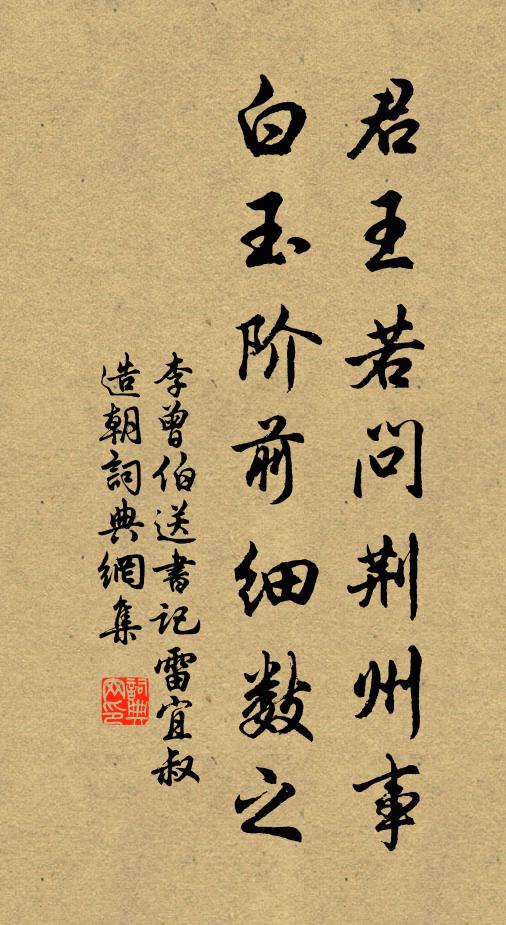 君王若问荆州事
白玉阶前细数之
李曾伯送書记雷宜叔
造朝詞典網集
詞典网印